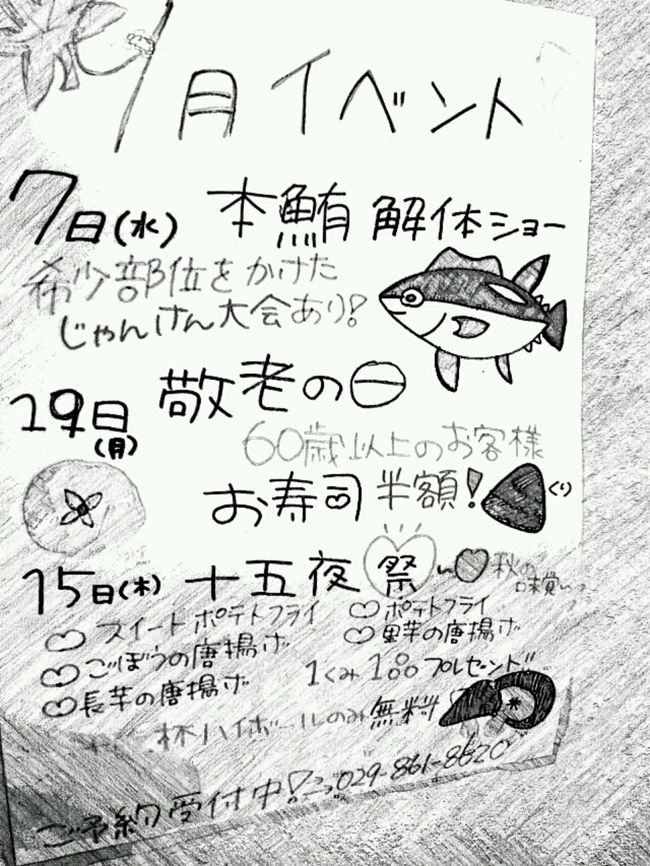 9月イベント
7日(水) 本鮪 解体ショー
希少部位をかけた
じゃんけん大会あり!
19日(月) 敬老の日
60歳以上のお客様
お寿司 半額!
くり
15日(木) 十五夜 祭 〜♡秋の味覚〜
♡スイートポテトフライ ♡ポテトフライ
♡ごぼうの唐揚げ ♡里芋の唐揚げ
♡長芋の唐揚げ 1くみ1品プレゼント
杯ハイボールのみ無料
ご予約受付中! 029-861-8620